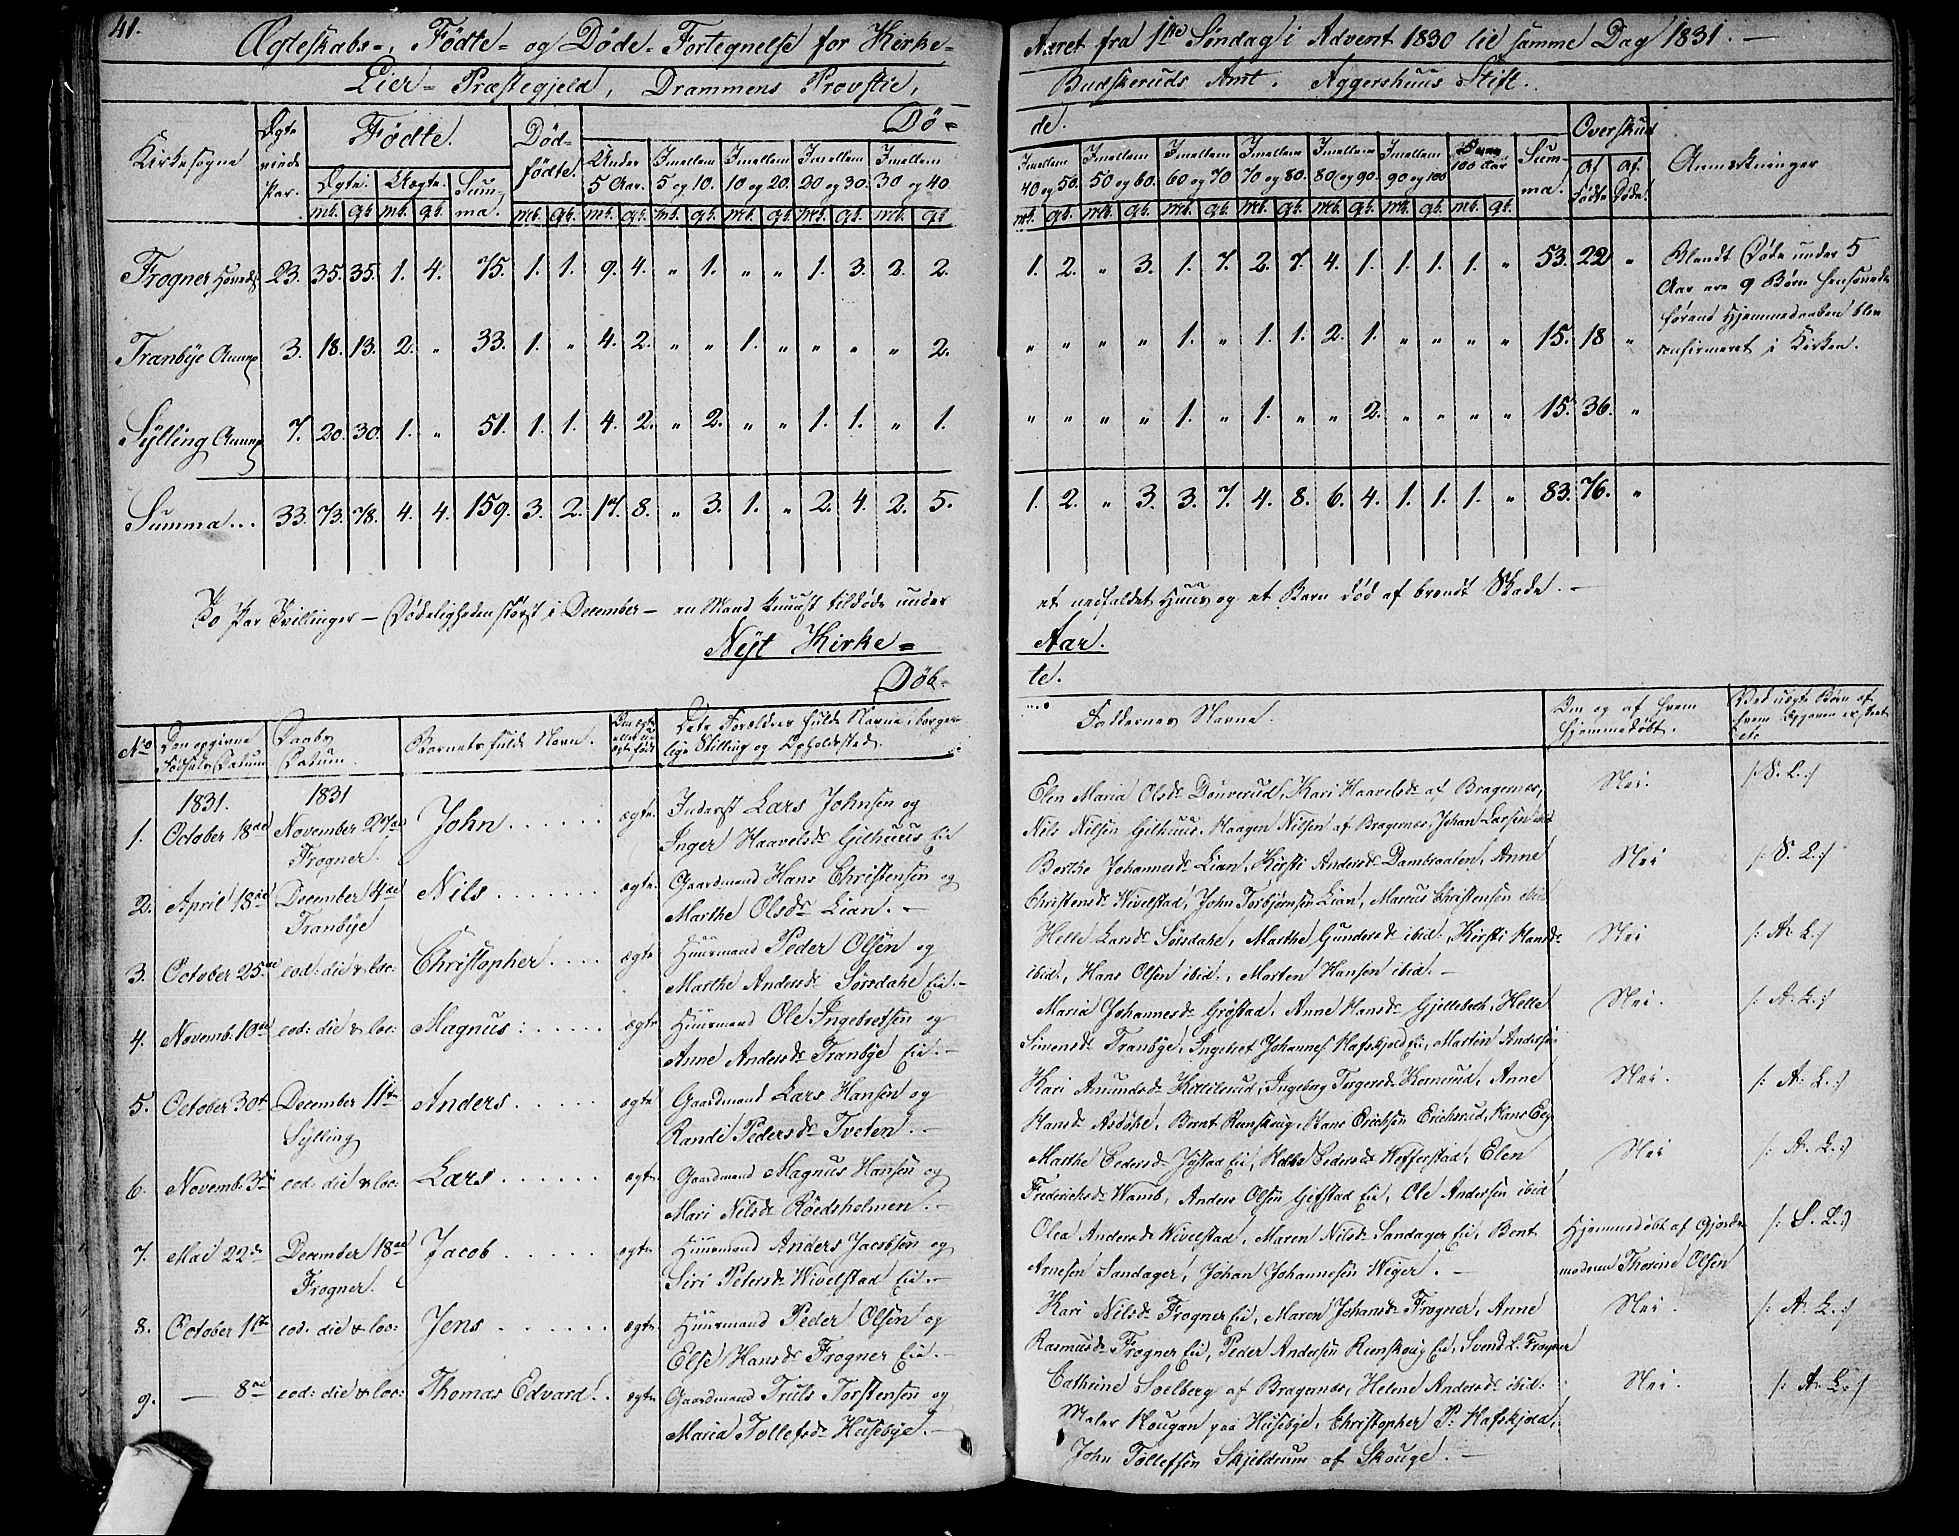 41.
Ægteskabs-, Fødte- og Døde-Fortegnelse for Kirke-
Lier-Præstegjeld, Drammens Provstie,
Aaret fra 1ste Søndag i Advent 1830 til samme Dag 1831.
Budskeruds Amt. Aggershuus Stift.
Kirkesogne | Ægte viede Par. | Fødte. | Død-fødte. | Dø-
de. | Overskud | Anmærkninger
Ægte. | Uægte. | Sum-ma. | Under 5 Aar. | Imellem 5 og 10. | Imellem 10 og 20. | Imellem 20 og 30. | Imellem 30 og 40.
Imellem 40 og 50. | Imellem 50 og 60. | Imellem 60 og 70 | Imellem 70 og 80. | Imellem 80 og 90. | Imellem 90 og 100 | 100 Aar | Sum-ma. | af Fødte | af Døde.
Frogner Hoved | 23. | 35. | 35. | 1. | 4. | 75. | 1. | 1. | 9. | 4. | " | 1. | " | " | 1. | 3. | 2. | 2.
1. | 2. | " | 3. | 1. | 7. | 2. | 7. | 4. | 1. | 1. | 1. | 1. | " | 53. | 22 | "
Blandt Døde under 5
Aar ere 9 Børn hensovede
førend Hjemmedaaben blev
confirmeret i Kirken.
Tranbye Annex | 3. | 18. | 13. | 2. | " | 33. | 1. | " | 4. | 2. | " | " | 1. | " | " | " | " | 2.
" | " | " | " | 1. | " | 1. | 1. | 2. | 1. | " | " | " | " | 15. | 18 | "
Sylling Annex | 7. | 20. | 30. | 1. | " | 51. | 1. | 1. | 4. | 2. | " | 2. | " | " | 1. | 1. | " | 1.
" | " | " | " | 1. | " | 1. | " | " | 2. | " | " | " | " | 15. | 36. | "
Summa... | 33. | 73. | 78. | 4. | 4. | 159. | 3. | 2. | 17. | 8. | " | 3. | 1. | " | 2. | 4. | 2. | 5.
1. | 2. | " | 3. | 3. | 7. | 4. | 8. | 6. | 4. | 1. | 1. | 1. | " | 83. | 76. | "
To Par Tvillinger – Dødeligheden størst i December – en Mand knust tildøde under
et nedfaldet Huus og et Barn død af brændt Skade. –
Nyt Kirke-
Aar.
Døb-
te.
No | Den opgivne Fødsels Datum | Daabs Datum. | Barnets fulde Navn. | Om ægte eller uægte født | Dets Forældres fulde Navne, borger-
lige Stilling og Opholdssted.
Faddernes Navne. | Om og af hvem hjemmedøbt. | Ved uægte Børn af
1831. | 1831
1. October 18de | November 27de Frogner. | John...... | ægte. | Inderst Lars Johnsen og
Inger Haavelsdr Gilhuus Eie
Elen Maria Olsdr Douverud, Kari Haavelsdr af Bragernæs, | Nei. | /: S. L. :/
Nils Nilsen Gilhuus, Haagen Nilsen af Bragernæs, Johan Larsen ibid
2. April 18de | December 4de Tranbye | Nils...... | ægte. | Gaardmand Hans Christensen og
Marthe Olsdr Lian. –
Berthe Johannesdr Lian, Kirsti Andersdr Dambraaten, Anne | Nei | /: S. L. :/
Christensdr Wivelstad, John Torbjørnsen Lian, Marcus Christensen ibid
3. October 25de | eod: die & loc: | Christopher.... | ægte. | Huusmand Peder Olsen og
Marthe Andersdr Sørsdahl Eie. –
Helle Larsdr Sørsdahl, Marthe Gundersdr ibid:, Kirsti Hansdr | Nei | /: A. L. :/
ibid:, Hans Olsen ibid:, Morten Hansen ibid: –
4. Novemb. 10de | eod: die & loc: | Magnus:.... | ægte. | Huusmand Ole Ingebretsen og
Anne Andersdr Tranbye Eie. –
Maria Johannesdr Grøstad, Anne Hansdr Gjellebech, Helle | Nei. | /: A. L. :/
Simensdr Tranbye, Ingebret Johannes Hafskjold Eie, Martin Andersen
5. October 30te | December 11te Sylling | Anders..... | ægte. | Gaardmand Lars Hansen og
Randi Pedersdr Tveten. –
Kari Amundsdr Kittilsrud, Ingeborg Torgersdr Kornrud, Anne | Nei. | /: A. L. :/
Hansdr Asdøhl, Bernt Renskoug, Hans Erichsen Erichsrud, Hans
6. Novemb. 3die | eod: die & loc: | Lars...... | ægte. | Gaardmand Magnus Hansen og
Mari Nilsdr Røedsholmen. –
Marthe Pedersdr Eie, Helle Pedersdr Hefferstad, Elen | Nei | /: A. L. :/
Frederichsdr Wamb, Anders Olsen Gifstad Eie, Ole Andersen ibid
7. Mai 22de | December 18de Frogner. | Jacob..... | ægte. | Huusmand Anders Jacobsen og
Siri Petersdr Wivelstad Eie. –
Olea Andersdr Wivelstad, Maren Nilsdr Sandager Eie, Bent | Hjemmedøbt af Gjorde- | /: S. L. :/
Arnesen Sandager, Johan Johannesen Weger. – | moderen Thorine Olsen
8. October 11te | eod: die & loc: | Jens...... | ægte. | Huusmand Peder Olsen og
Else Hansdr Frogner Eie. –
Kari Nilsdr Frogner Eie, Maren Johansdr Frogner, Anne | Nei. | /: A. L. :/
Rasmusdr Frogner Eie, Peder Andersen Renskoug Eie, Svend L. Frogner
9. — 8de | eod: die & loc: | Thomas Edvard. | ægte. | Gaardmand Truls Torstensen og
Maria Tollefsdr Husebye. –
Cathrine Soelberg af Bragernæs, Helene Andersdr ibid: | Nei. | /: A. L. :/
Maler Hougan paa Husebye, Christopher P. Hafskjold,
John Tollefsen Skjeldrum af Skouge. –